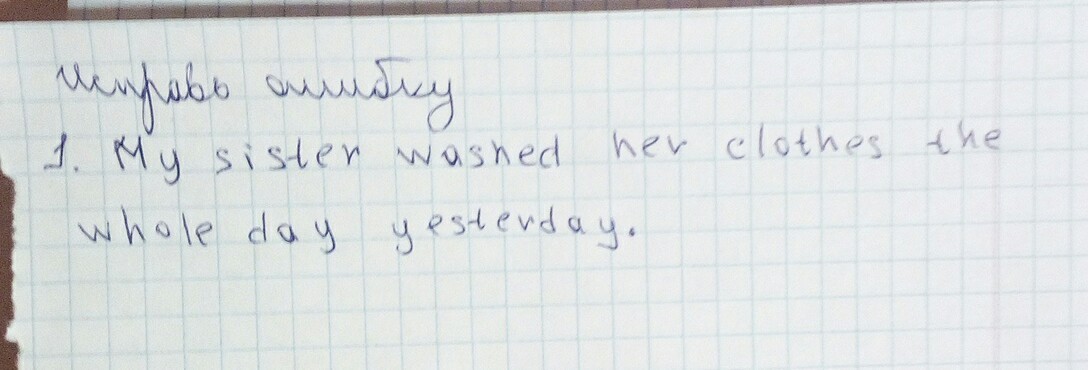 Исправь ошибку
1. My sister washed her clothes the
whole day yesterday.